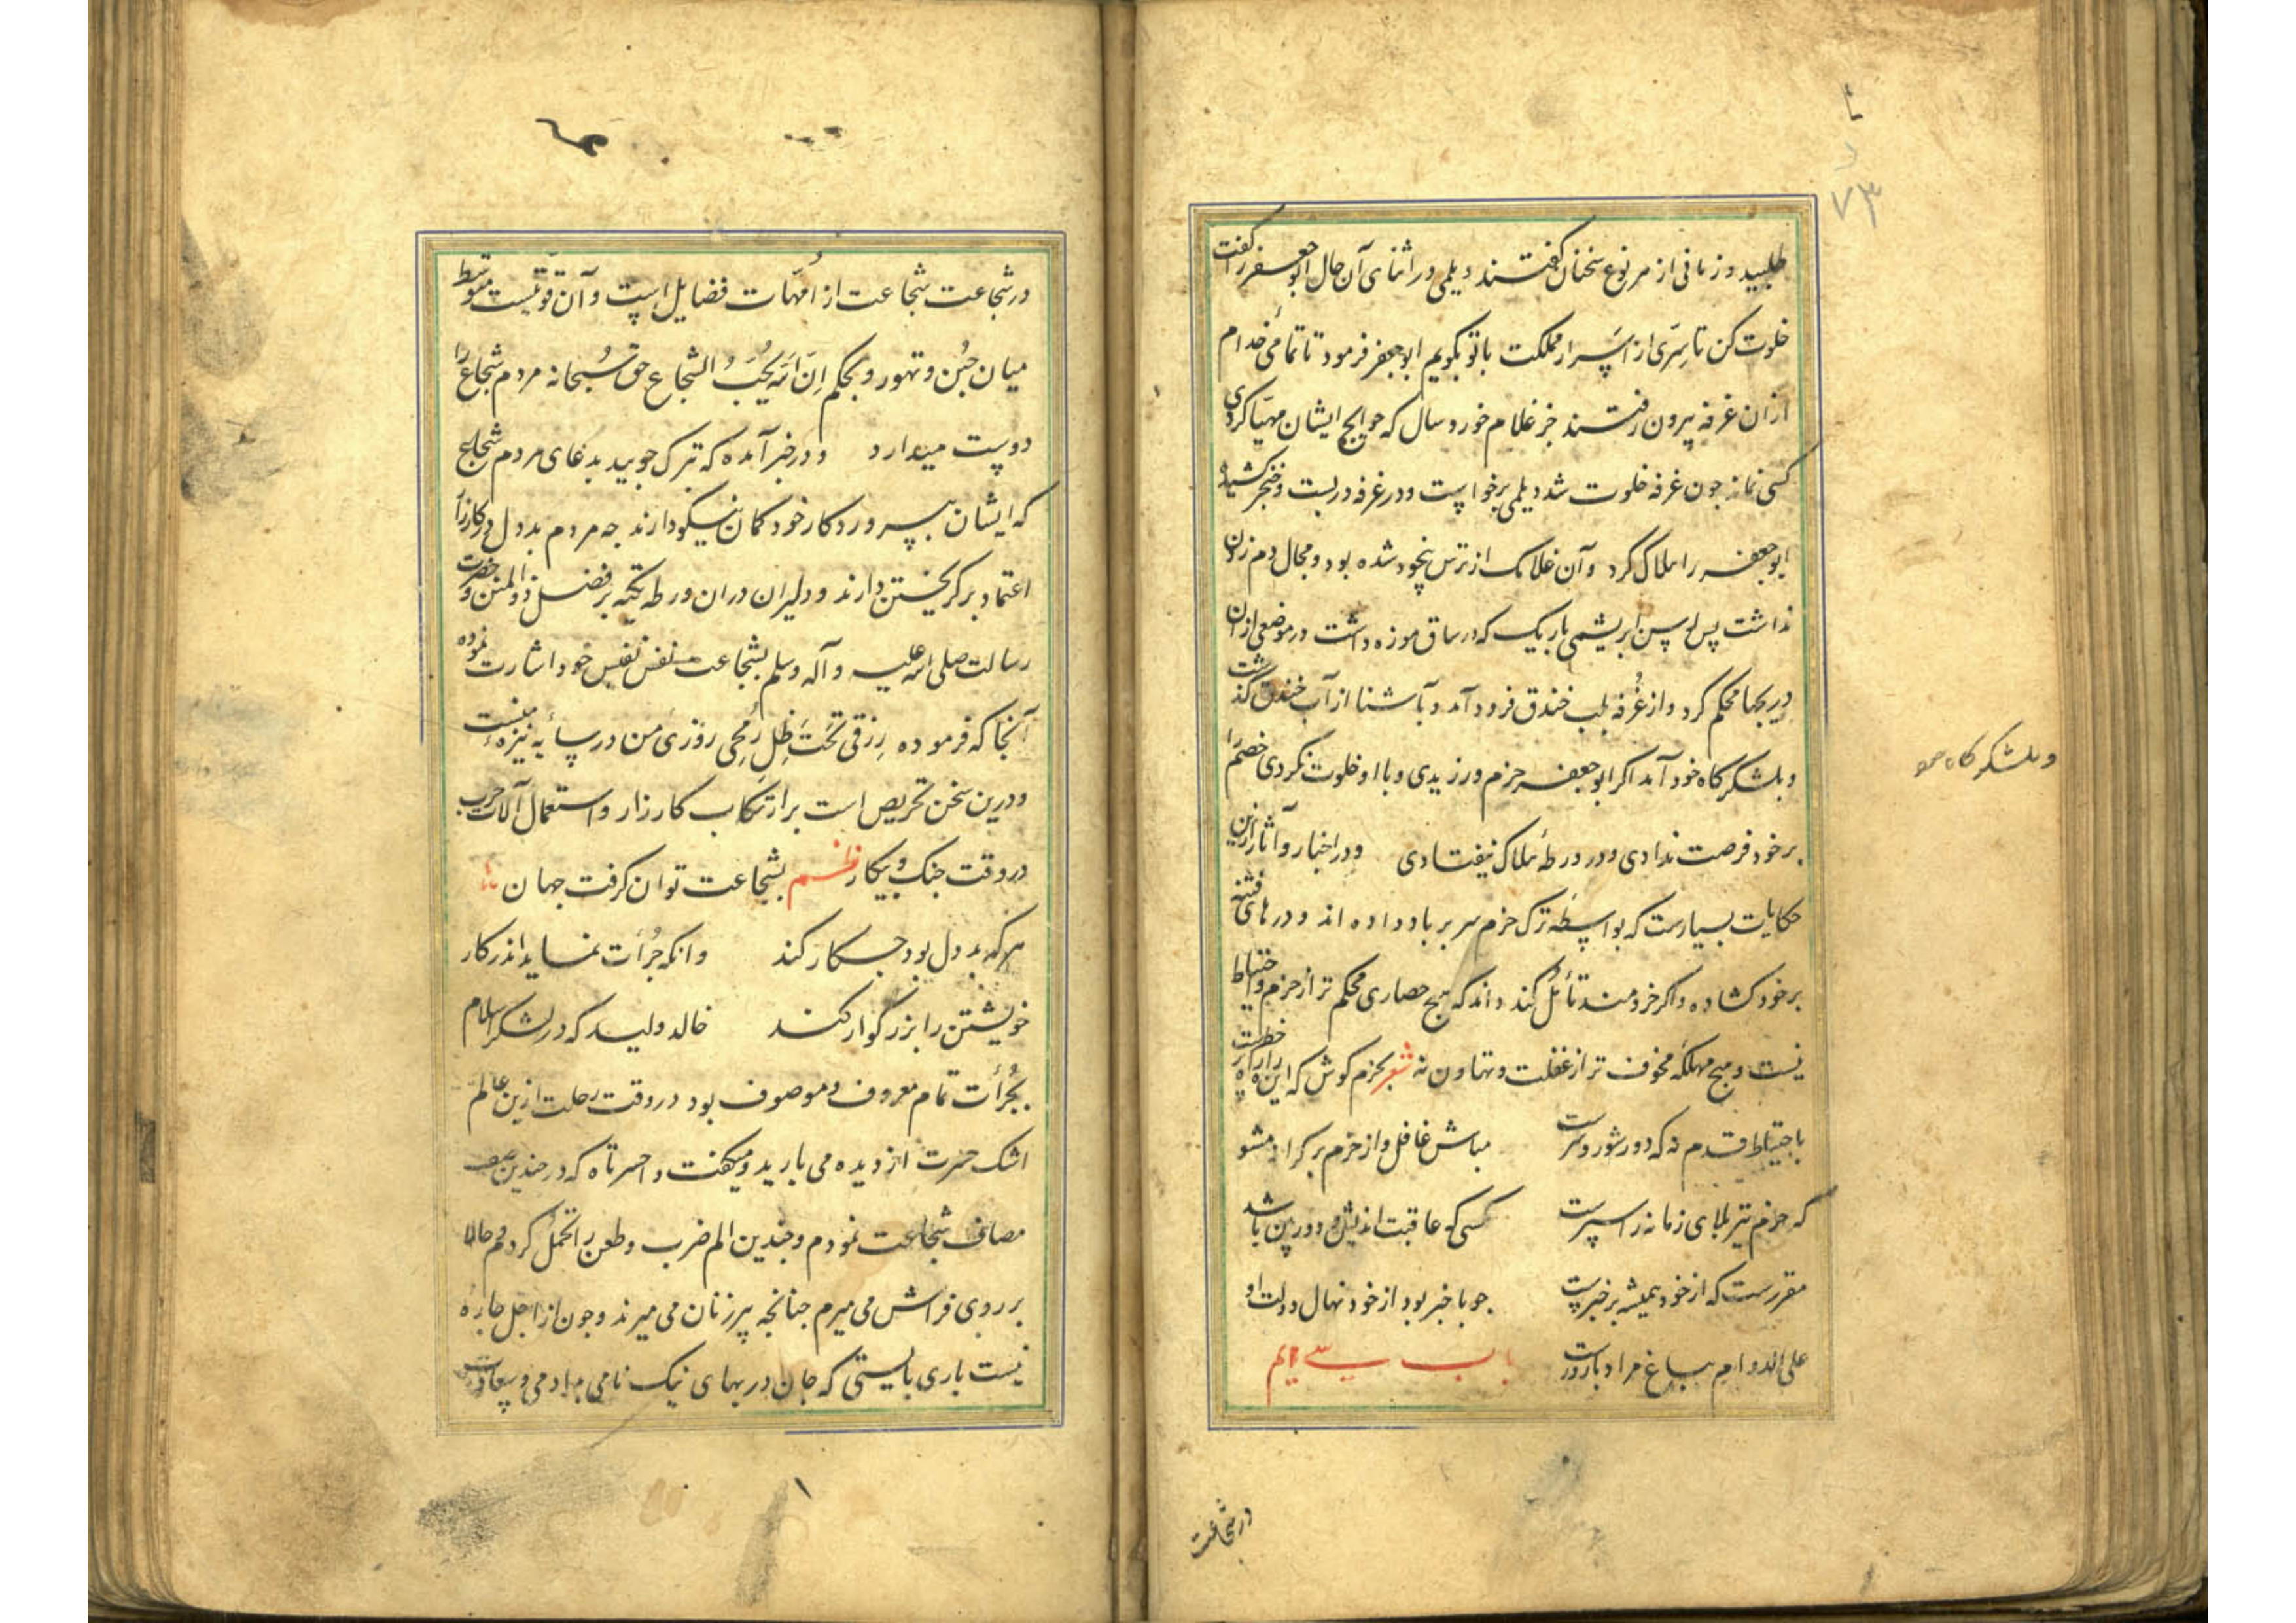 ۷۳
طلبید و زمانی از هر نوع سخنان گفتند دیلمی در اثنای آن حال ابوجعفر را گفت
خلوت کن تا سِرّی از اسرار مملکت با تو بگویم ابوجعفر فرمود تا تمامئ خدام
ازان غرفه بیرون رفتند جز غلام خورد سال که حوایج ایشان مهیّا کردی
کسی نماند چون غرفه خلوت شد دیلمی برخواست و در غرفه در بست و خنجر کشیده
ابوجعفر را هلاک کرد و آن غلامک از ترس بیخود شده بود و مجال دم زدن
نداشت پس او رسن ابریشمی باریک که در ساق موزه داشت در موضعی ازان
دریجها محکم کرد و از غُرفه بلب خندق فرود آمد و بآشنا از آب خندق گذشت
و بلشکرگاه خود آمد اکر ابوجعفر حزم ورزیدی و با او خلوت نکردی خصم را
بر خود فرصت ندادی و در ورطهٔ هلاک نیفتادی و در اخبار و آثار ازین
حکایات بسیارست که بواسطهٔ ترک حزم سر بر باد داده اند و درهای فتنه
بر خود کشاده و اکر خردمند تأمّل کند داند که هیچ حصاری محکم تر از حزم و احتیاط
نیست و هیچ مهلکه مخوف تر از غفلت و تهاون نه شعر بحزم کوش که این راه را خطرست
باحتیاط قدم نه که دور شور و شرست مباش غافل و از حزم بر کرانه مشو
که حزم تیر بلای زمانه را سپرست کسی که عاقبت اندیش و دوربین باشد
مقررست که از خود همیشه بر خبرست چو باخبر بود از خود نهال دولت او
علی الدوام بباغ مراد بارورست باب سی ام
و بلشکرگاه خود
در شجاعت
در شجاعت شجاعت از اُمهّات فضایل است و آن قوّتیست متوسّط
میان جُبن و تهور و بحکم اِنَّ اللّه یُحِبُّ الشجاع حق سُبحانه مردم شجاع را
دوست میدارد و در خبر آمده که تبرک جویید بدعای مردم شجاع
که ایشان بپروردکار خود کمان نیکو دارند چه مردم بددل در کارزار
اعتماد بر کریختن دارند و دلیران دران ورطه تکیه بر فضل ذوالمنن و حضرت
رسالت صلی اللّه علیه و آله وسلم بشجاعت نفس نفیس خود اشارت نموده
آنجا که فرموده رِزقی تَحتَ ظِلِّ رُمحی روزئ من در سایهٔ نیزهٔ منست
و درین سخن تحریص است بر ارتکاب کارزار و استعمال آلات حرب
در وقت جنک و پیکار نظم بشجاعت توان کرفت جهان
هر که بددل بود چه کار کند وانکه جُرأت نماید اندر کار
خویشتن را بزرگوار کند خالد ولید که در لشکر اسلام
بجُرأت تمام معروف و موصوف بود در وقت رحلت ازین عالم
اشک حسرت از دیده می بارید و میکفت واحسرتاه که در چندین صف
مصاف شجاعت نمودم و چندین الم ضرب و طعن را تحمّل کردم حالا
بر روی فراش می میرم چنانچه پیرزنان می میرند و چون از اجل چاره
نیست باری بایستی که جان در بهای نیک نامی دادمی و سعادت